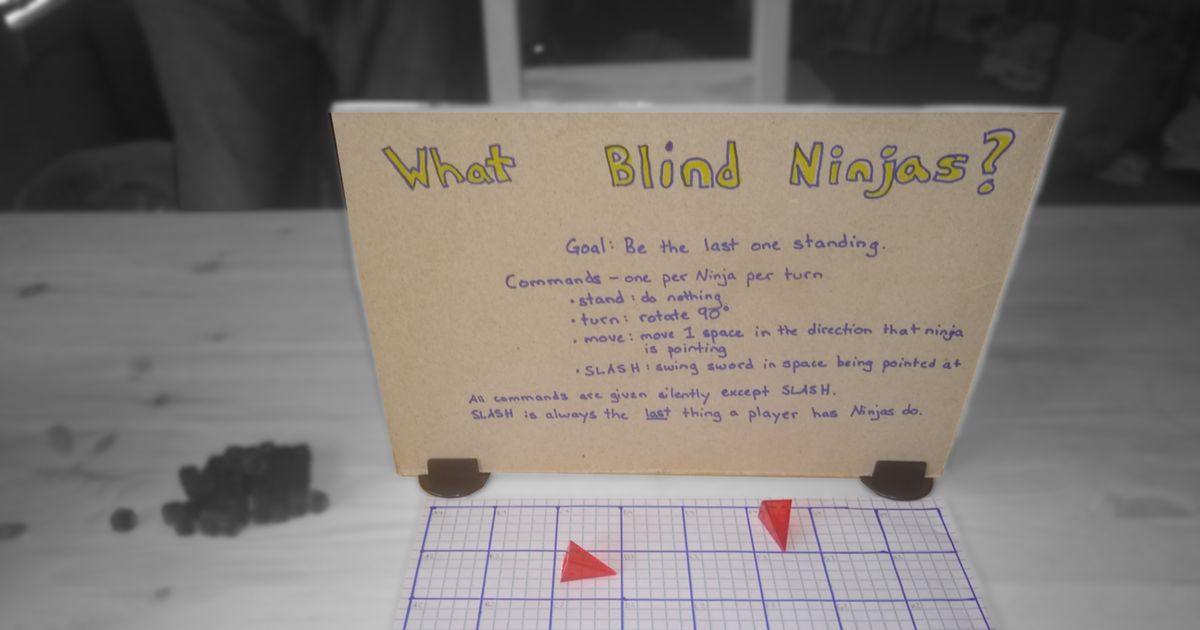 What Blind Ninjas?
Goal: Be the last one standing.
Commands - one per Ninja per turn
• stand: do nothing
• turn: rotate 90°
• move: move 1 space in the direction that ninja
is pointing
• SLASH: swing sword in space being pointed at
All commands are given silently except SLASH.
SLASH is always the last thing a player has Ninjas do.